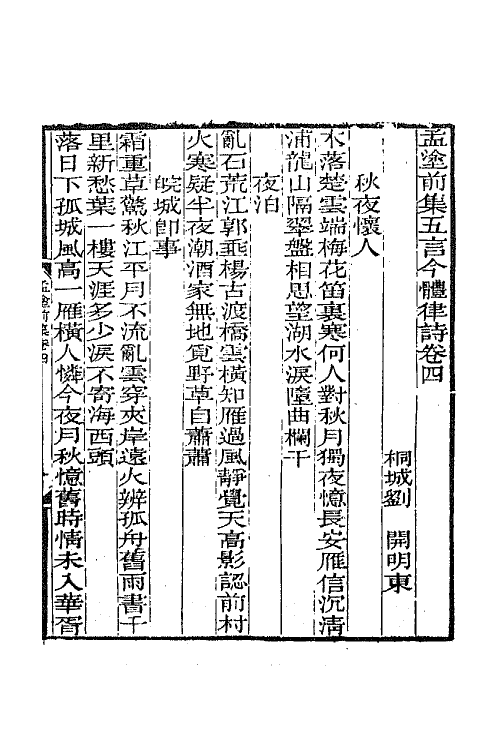 孟塗前集五言今體律詩卷四
桐城劉　開明東
秋夜懷人
木落楚雲端梅花笛裏寒何人對秋月獨夜憶長安雁信沉淸
浦龍山隔翠盤相思望湖水淚墮曲欄干
夜泊
亂石荒江郭乖楊古渡橋雲橫知雁過風靜覺天高影認前村
火寒疑半夜潮酒家無地覓野草自蕭蕭
皖城卽事
霜重草驚秋江平月不流亂雲穿夾岸遠火辨孤舟舊雨書千
里新愁葉一樓天涯多少淚不寄海西頭
落日下孤城風高一雁橫人憐今夜月秋憶舊時情未入華胥
孟塗前集卷四